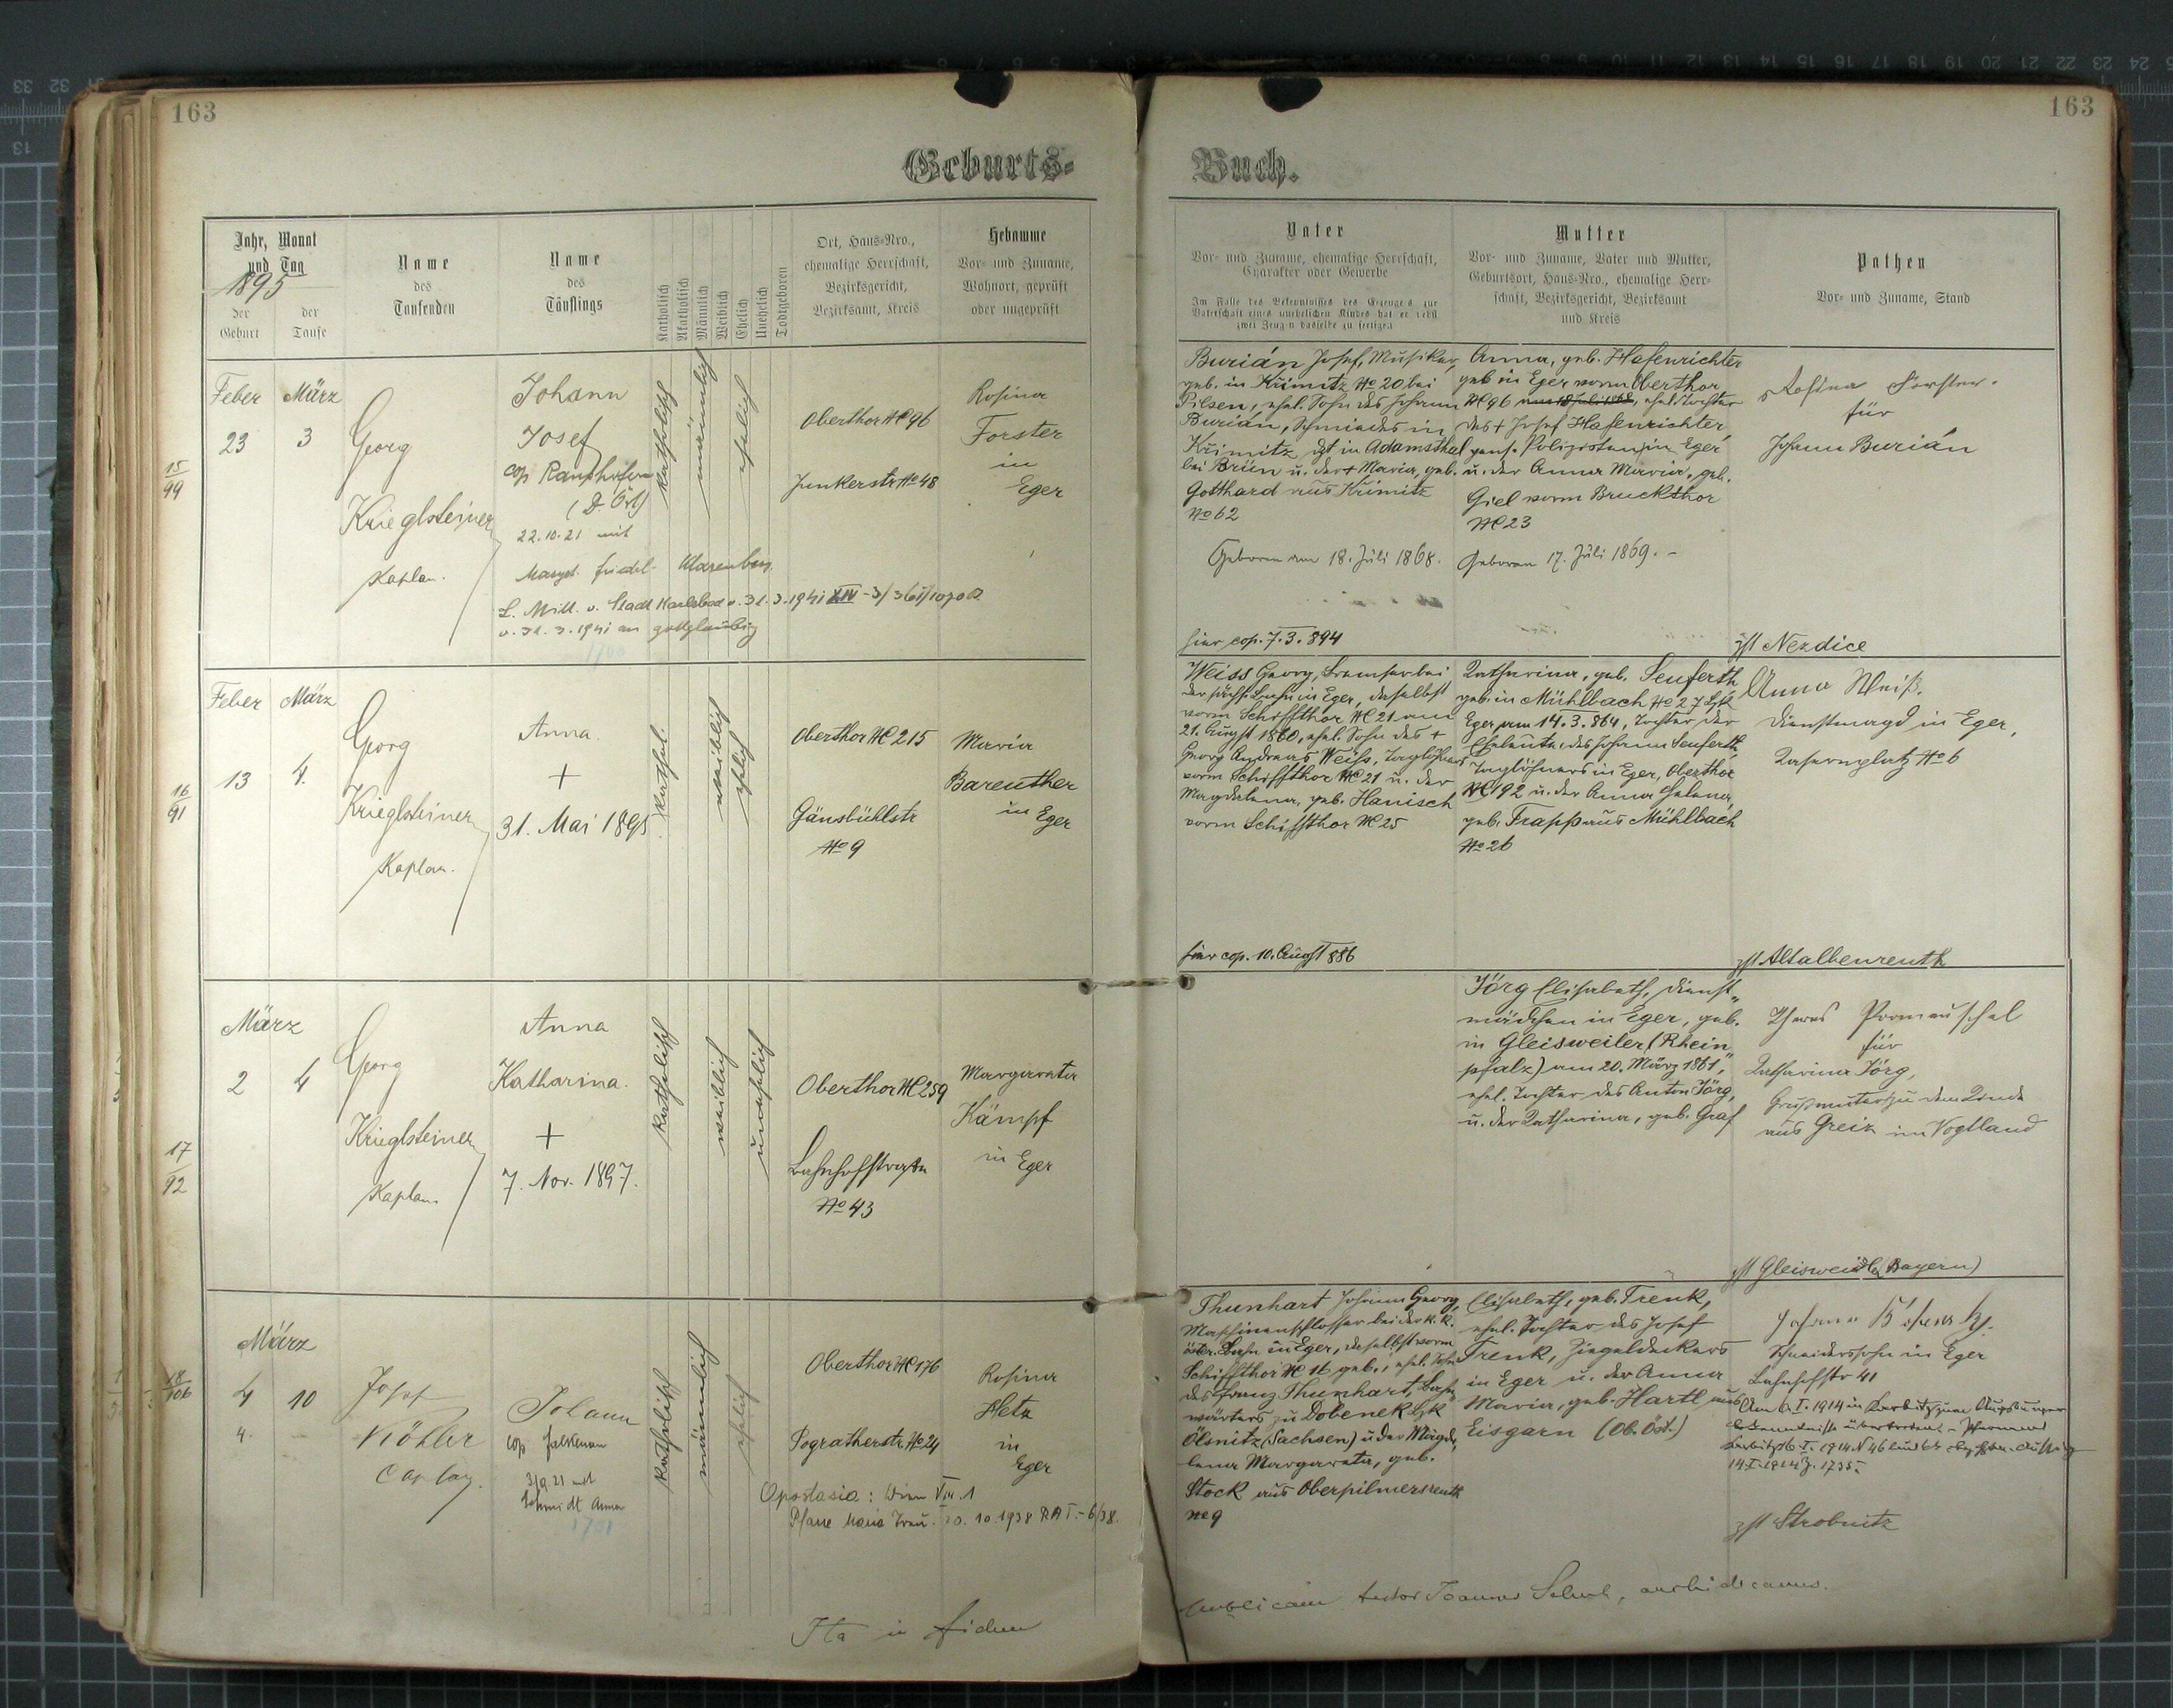 163
Geburts-
Jahr, Monat
und Tag
1895
der
Geburt
der
Taufe
Name
des
Taufenden
Name
des
Täuflings
Katholisch
Akatholisch
Männlich
Weiblich
Ehelich
Unehelich
Todtgeboren
Ort, Haus-Nro.,
ehemalige Herrschaft,
Bezirksgericht,
Bezirksamt, Kreis
Hebamme
Vor- und Zuname,
Wohnort, geprüft
oder ungeprüft
15
99
Feber
23
März
3
Georg
Krieglsteiner
Kaplan.
Johann
Josef
cop Ranshofen
22.10.21 mit
Margt. Friedl
v. Stadt Karlsbad v. 31.3.1941 XIV-3/
v. 31.3.1941 an gottgläubig
katholisch
männlich
ehelich
Oberthor № 96
Junkerstr № 48
Rosina
Forster
in
Eger
16
91
Feber
13
März
4.
Georg
Krieglsteiner
Kaplan.
Anna.
+
31. Mai 1895
kathol.
weiblich
ehelich
Oberthor № 215
Gänsbühlstr
№ 9
Maria
Bareuther
in Eger
17
92
März
2
4
Georg
Krieglsteiner
Kaplan.
Anna
Katharina.
+
7. Nov. 1897.
katholisch
weiblich
unehelich
Oberthor № 259
Bahnhofstraße
№ 43
Margareta
Kämpf
in Eger
18
106
März
4
4.
10
Josef
Köhler
Caplan.
Johann
cop Falkenau
3/9.21 mit
Schmidt Anna
1701
katholisch
männlich
ehelich
Oberthor № 176
Pogratherstr № 24
Rosina
Hetz
in
Eger
Apostasia: Wien VIII.1
Pfarre Maria Treu. 20.10.1938 RA I.-6/38.
Ita in fidem
163
Buch.
Vater
Vor- und Zuname, ehemalige Herrschaft,
Charakter oder Gewerbe
Im Falle des Bekenntnisses des Erzeugers zur
Vaterschaft eines unehelichen Kindes hat er nebst
zwei Zeugen dasselbe zu fertigen
Mutter
Vor- und Zuname, Vater und Mutter,
Geburtsort, Haus-Nro., ehemalige Herr-
schaft, Bezirksgericht, Bezirksamt
und Kreis
Pathen
Vor- und Zuname, Stand
Burián Josef, Musiker,
geb. in Křimitz № 20 bei
Pilsen, ehel. Sohn des Johann
Burián, Schmiedes in
Křimitz, dzt in Adamsthal
bei Brün u. der + Maria, geb.
Gotthard aus Křimitz
№ 62
Geboren am 18. Juli 1868.
hier cop. 7.3.894
Anna, geb. Hafenrichter
geb in Eger vorm Oberthor
№ 96 ehel. Tochter
des + Josef Hafenrichter
pens. Polizisten in Eger
u. der Anna Maria, geb.
Giel vorm Bruckthor
№ 23
Geboren 17. Juli 1869. -
Rosina Forster.
für
Johann Burián
zst Nezdice
Weiss Georg, Bremser bei
der sächs. Bahn in Eger, daselbst
vorm Schiffthor № 21 am
21. August 1860, ehel. Sohn des +
Georg Andreas Weiss, Taglöhners
vorm Schiffthor № 21 u. der
Magdalena, geb. Hanisch
vorm Schiffthor № 25
hier cop. 10. August 886
Katharina, geb. Seuferth
geb. in Mühlbach № 27 Bzk
Eger am 14.3.864, Tochter der
Eheleute des Johann Seuferth,
Taglöhners in Eger, Oberthor
№ 192 u. der Anna Helena,
geb. Trapp aus Mühlbach
№ 26
Anna Weiß,
Dienstmagd in Eger,
Kasernplatz № 6
zst Altalbenreuth
Jörg Elisabeth, Dienst-
mädchen in Eger, geb.
in Gleisweiler (Rhein-
pfalz) am 20. März 1861,
ehel. Tochter des Anton Jörg,
u. der Katharina, geb. Graf
für
Katharina Jörg,
Großmutter zu dem Kinde
aus Greiz im Vogtland
zst Gleisweiler (Bayern)
Thunhart Johann Georg,
Maschinenschlosser bei der k.k.
österr. Bahn in Eger, daselbst vorm
Schiffthor № 16 geb., ehel. Sohn
des Franz Thunhart, Bahn-
wärters zu Dobenek Bzk
Ölsnitz (Sachsen) u der Magda-
lena Margareta, geb.
Stock aus Oberpilmersreuth
№ 9
Elisabeth, geb. Trenk,
ehel. Tochter des Josef
Trenk, Ziegeldeckers
in Eger u. der Anna
Maria, geb. Hartl aus
Eisgarn (Ob. Öst.)
Johann
Schneiderssohn in Eger
Bahnhofstr 41
14.I.1914 Z. 1735.
zst Strobnitz